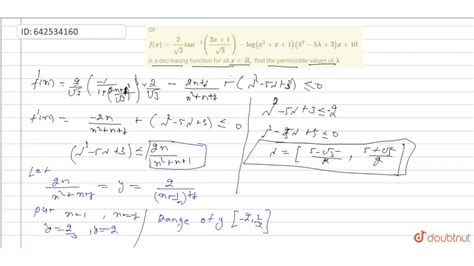 ID: 642534160
Or
f(x) = 2/√3 tan⁻¹ ((2x + 1)/√3) − log(x² + x + 1)(λ² − 5λ + 3)x + 10
is a decreasing function for all x ∈ R, find the permissible values of λ
f'(x) = 2/√3 ( 1/(1+((2x+1)/√3)²) ) · 2/√3 − (2x+1)/(x²+x+1) + (λ²−5λ+3) ≤ 0
f'(x) = −2x/(x²+x+1) + (λ²−5λ+3) ≤ 0
(λ²−5λ+3) ≤ 2x/(x²+x+1)
Let
2x/(x²+x+1) = y = 2/
put x=1 ,
y = 2/3 , y = −2
Range of y [−2, 2/3]
λ²−5λ+3 ≤ −2
λ²−5λ+5 ≤ 0
λ = [ (5−√5)/2 , (5+√5)/2 ]
doubtnut